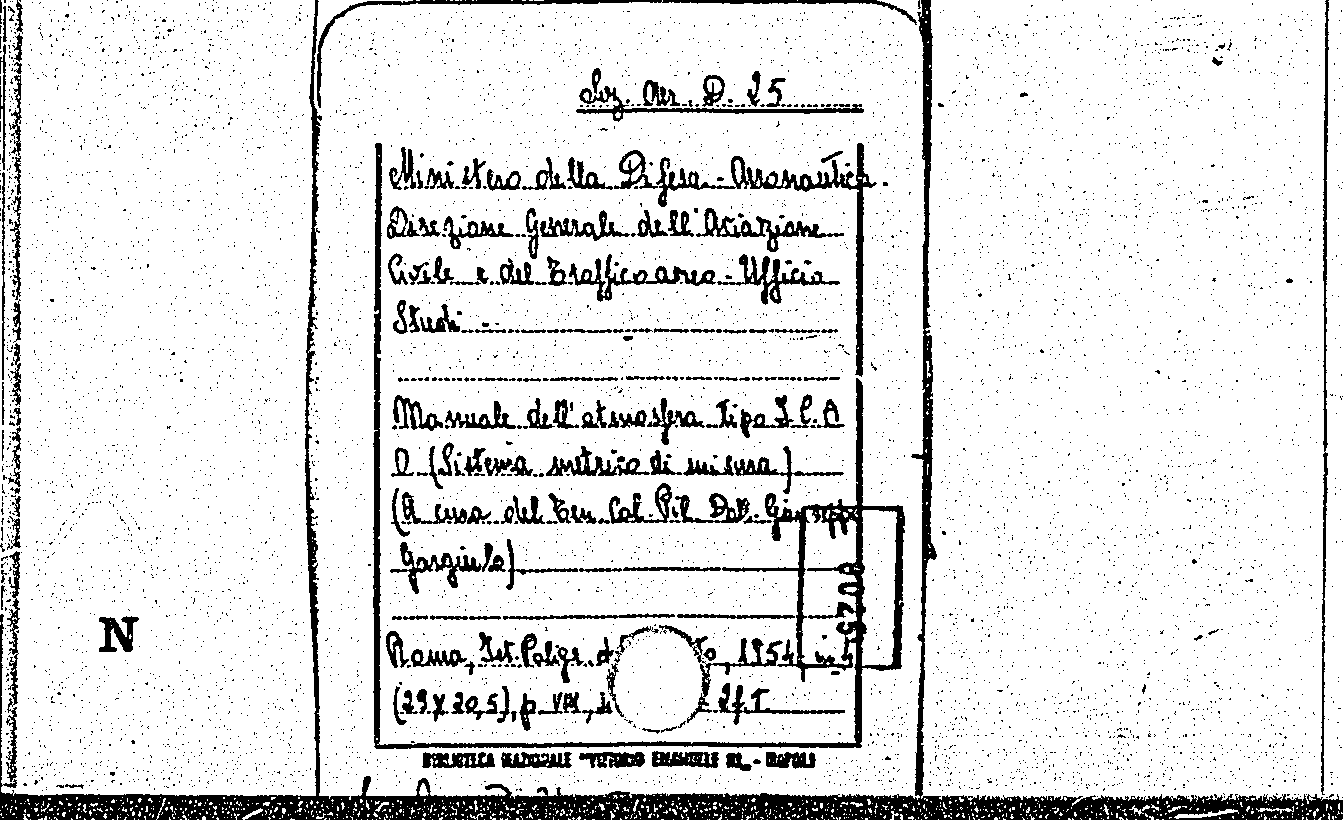 Sez. Aer. D. 25
Ministero della Difesa - Aeronautica.
Direzione Generale dell'Aviazione
Civile e del Traffico aereo - Ufficio
Studi -
Manuale dell'atmosfera Tipo I.C.A
O (Sistema metrico di misura)
(A cura del Ten. Col. Pil. Dott. Giuseppe
Gargiulo)
0025
N
Roma, Ist. Poligr. d to, 1954 in
(29x20,5), p. VIII, - 2f.T
BIBLIOTECA NAZIONALE "VITTORIO EMANUELE III" - NAPOLI